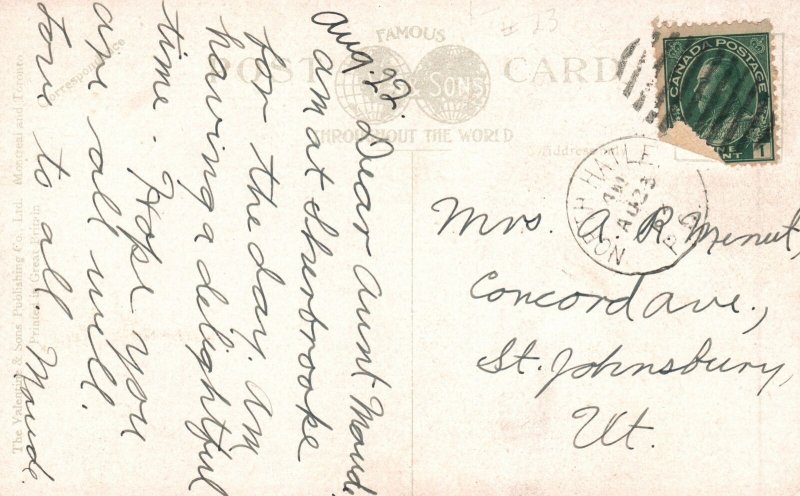 Aug. 22.
Dear Aunt Maude
am at Sherbrooke
for the day. am
having a delightful
time. Hope you
are all well.
Love to all Maude.
FAMOUS
POST CARD
SONS
THROUGHOUT THE WORLD
Correspondence
Address
The Valentine & Sons Publishing Co., Ltd. Montreal and Toronto
Printed in Great Britain
CANADA POSTAGE
ONE CENT 1
NORTH HATLE
AM
AU 23
Mrs. A. R. Menut,
Concord ave.,
St. Johnsbury,
Vt.